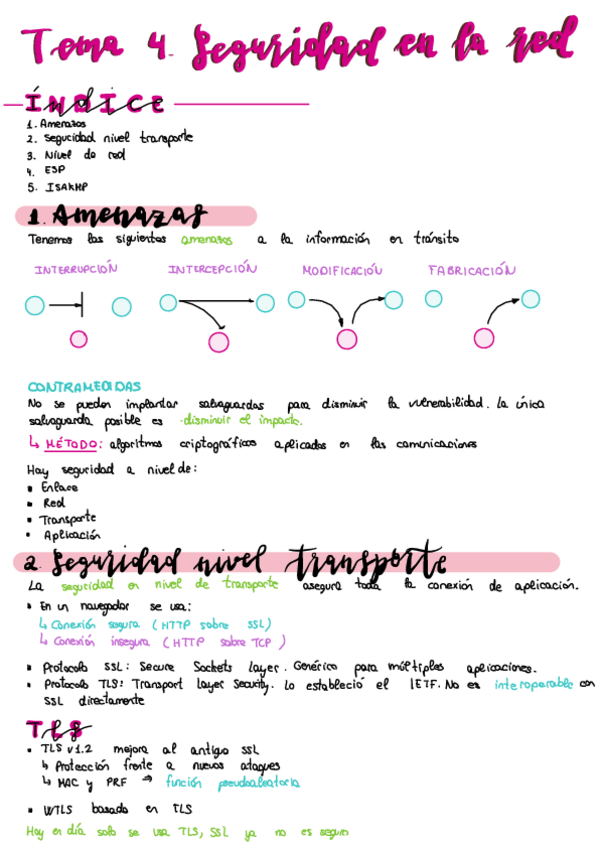 Tema 4. Seguridad en la red
ÍNDICE
1. Amenazas
2. Seguridad nivel transporte
3. Nivel de red
4. ESP
5. ISAKMP
1. Amenazas
Tenemos las siguientes amenazas a la información en tránsito
INTERRUPCIÓN INTERCEPCIÓN MODIFICACIÓN FABRICACIÓN
CONTRAMEDIDAS
No se pueden implantar salvaguardas para disminuir la vulnerabilidad. La única
salvaguarda posible es disminuir el impacto.
↳ MÉTODO: algoritmos criptográficos aplicados en las comunicaciones
Hay seguridad a nivel de:
• Enlace
• Red
• Transporte
• Aplicación
2. Seguridad nivel transporte
La seguridad en nivel de transporte asegura toda la conexión de aplicación.
• En un navegador se usa:
↳ Conexión segura (HTTP sobre SSL)
↳ Conexión insegura (HTTP sobre TCP)
• Protocolo SSL: Secure Sockets Layer. Genérico para múltiples aplicaciones.
• Protocolo TLS: Transport Layer Security. Lo estableció el IETF. No es interoperable con
SSL directamente
TLS
• TLS v1.2 mejora al antiguo SSL
↳ Protección frente a nuevos ataques
↳ MAC y PRF → función pseudoaleatoria
• WTLS basado en TLS
Hoy en día solo se usa TLS, SSL ya no es seguro